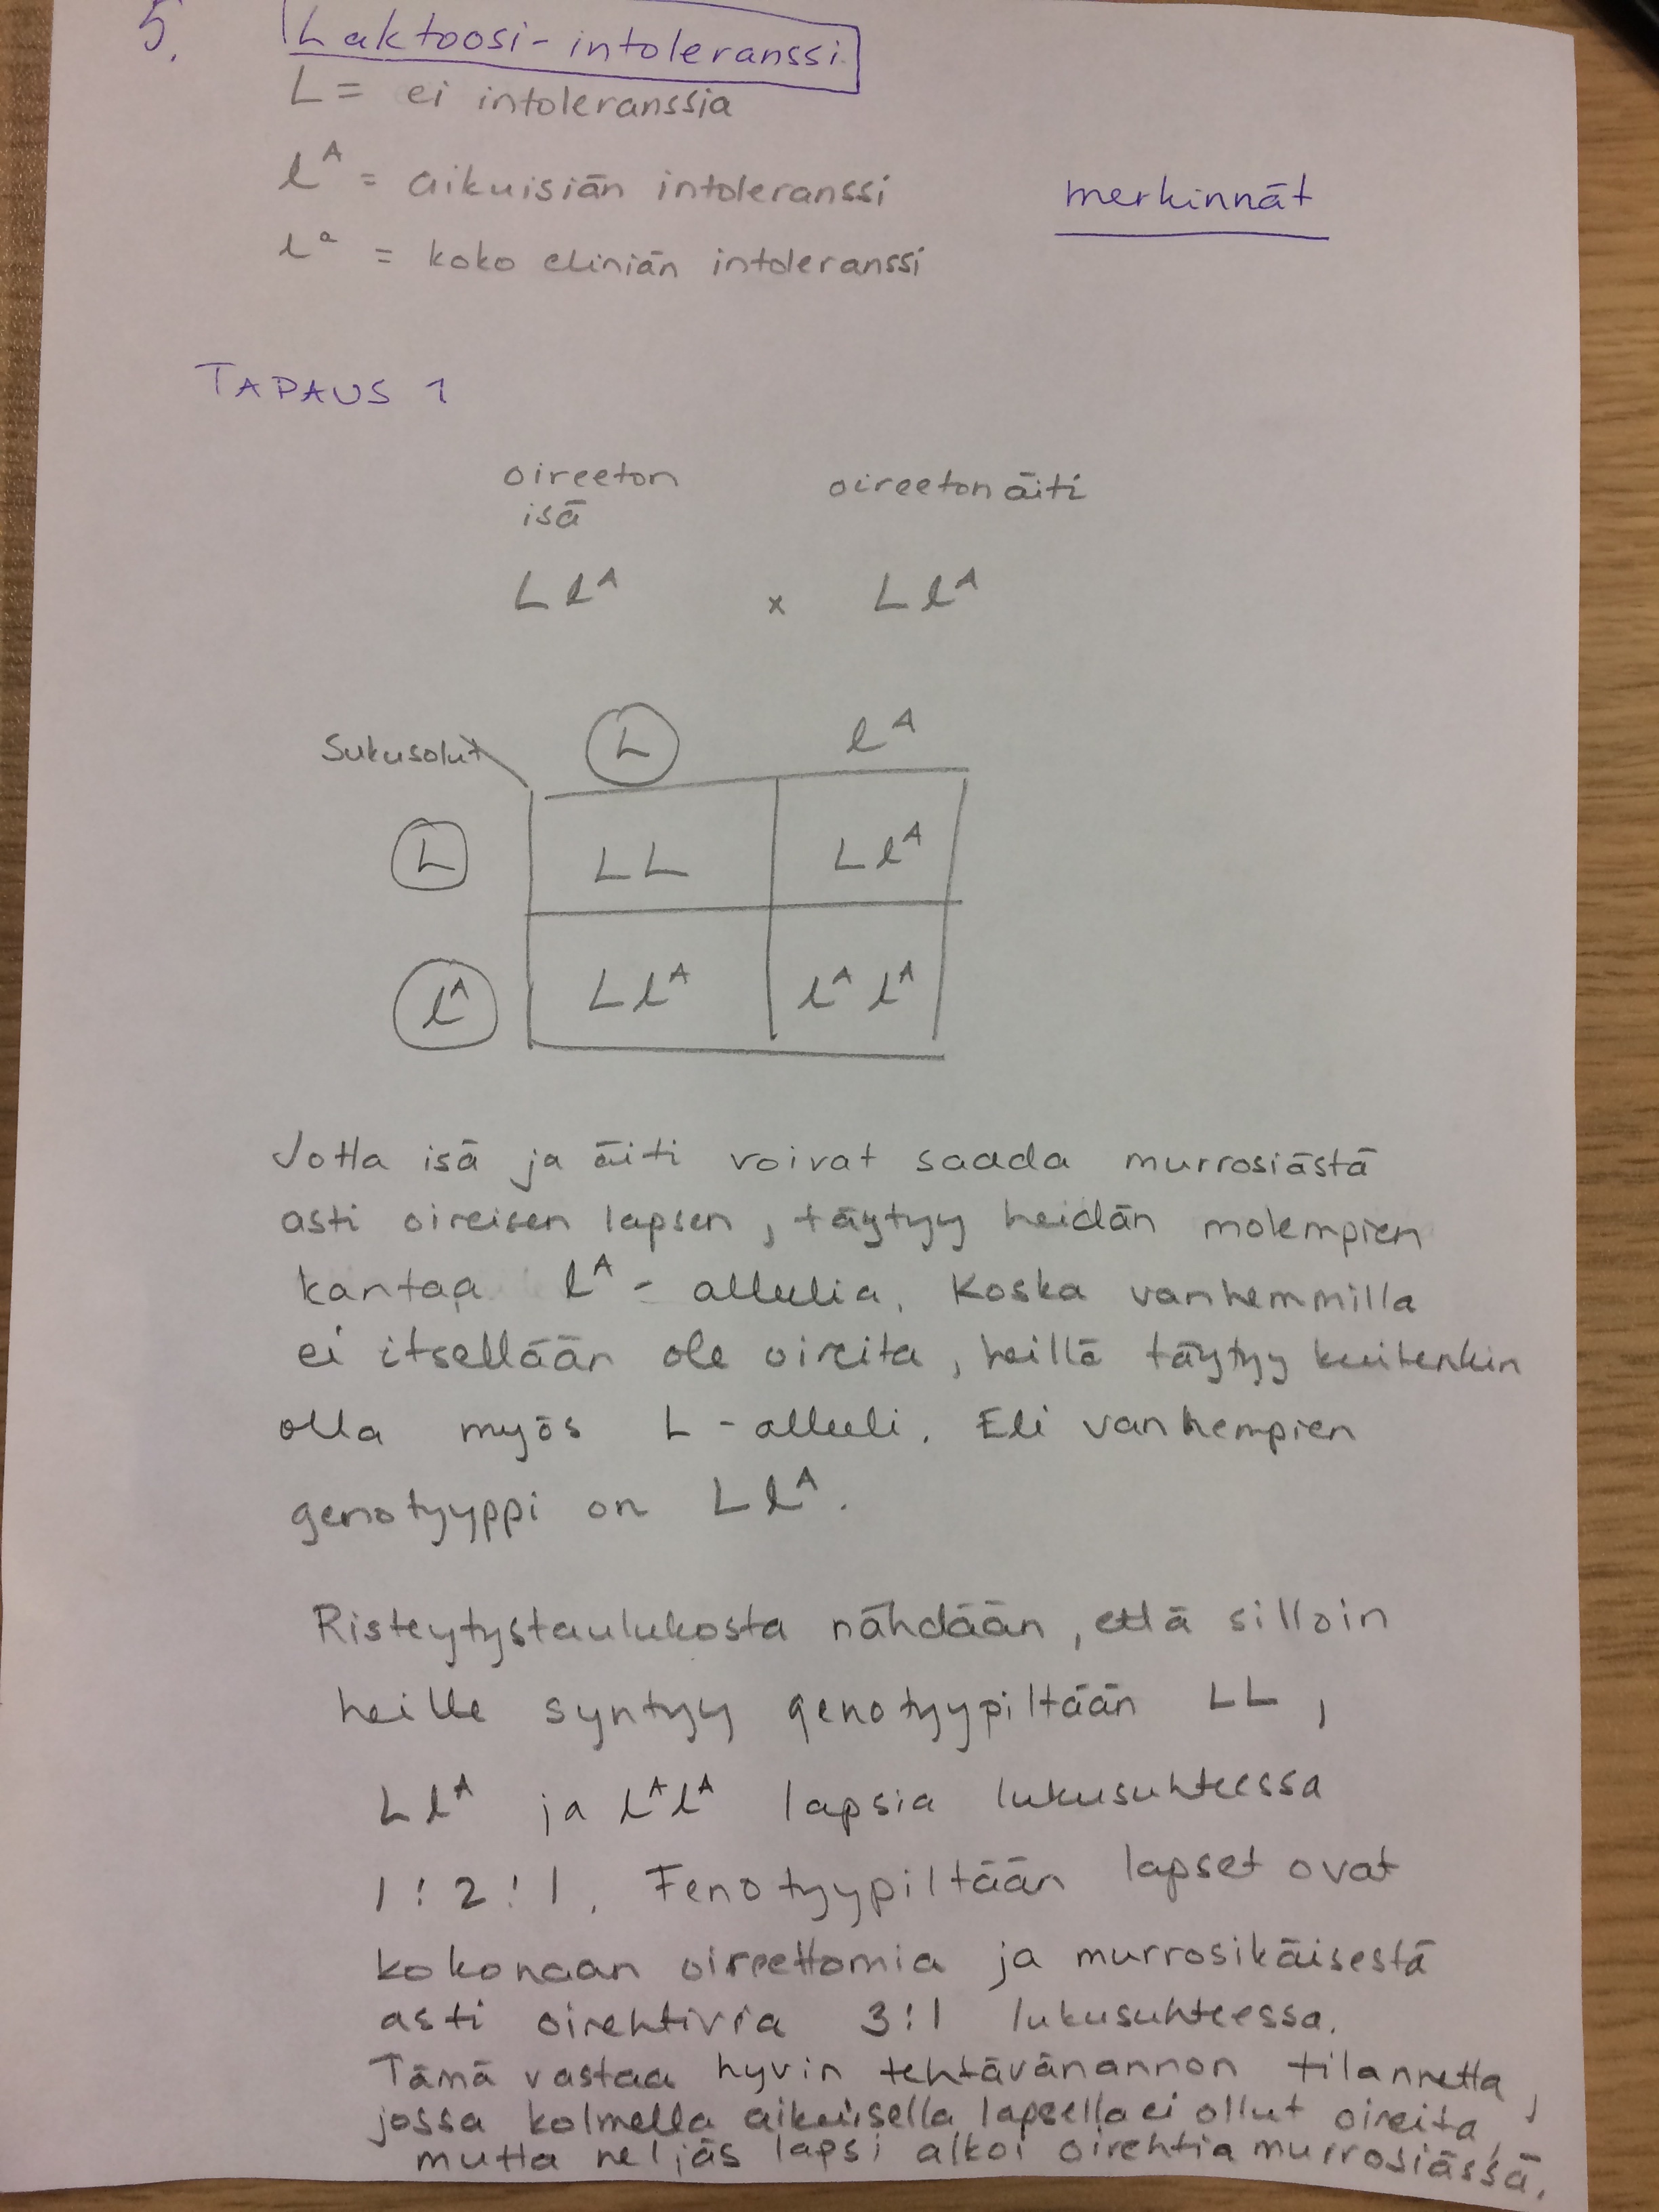 5. Laktoosi-intoleranssi
L = ei intoleranssia
lᴬ = aikuisiän intoleranssi
merkinnät
lᵃ = koko eliniän intoleranssi
TAPAUS 1
oireeton isä
oireeton äiti
L lᴬ x L lᴬ
Sukusolut L lᴬ
L LL L lᴬ
lᴬ L lᴬ lᴬ lᴬ
Jotta isä ja äiti voivat saada murrosiästä
asti oireisen lapsen, täytyy heidän molempien
kantaa lᴬ - alleelia. Koska vanhemmilla
ei itsellään ole oireita, heillä täytyy kuitenkin
olla myös L - alleeli. Eli vanhempien
genotyyppi on L lᴬ.
Risteytystaulukosta nähdään, että silloin
heille syntyy genotyypiltään LL,
L lᴬ ja lᴬ lᴬ lapsia lukusuhteessa
1:2:1. Fenotyypiltään lapset ovat
kokonaan oireettomia ja murrosikäisestä
asti oirehtivia 3:1 lukusuhteessa.
Tämä vastaa hyvin tehtävänannon tilannetta,
jossa kolmella aikuisella lapsella ei ollut oireita,
mutta neljäs lapsi alkoi oirehtia murrosiässä.